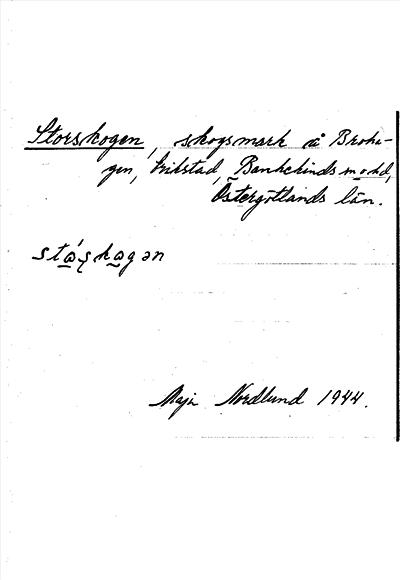 Storskogen, skogsmark å Broha-
gen, Vikstad, Bankekinds
Östergötlands län.
Maja Nordlund 1944.